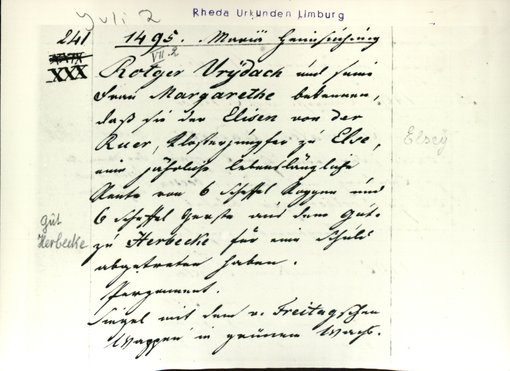 Juli 2
Rheda Urkunden Limburg
241
1495. Mariä Heimsuchung
VII. 2
XXX
Rotger Vrydach und seine
Frau Margarethe bekennen,
daß sie der Elisen von der
Ruer, Klosterjungfer zu Else,
eine jährliche lebenslängliche
Rente von 6 Scheffel Roggen und
6 Scheffel Gerste aus dem Gut
zu Herbecke für eine Schuld
abgetreten haben.
Pergament.
Siegel mit dem v. Freitagschen
Wappen in grünem Wachs.
Elsey
Gut
Herbecke